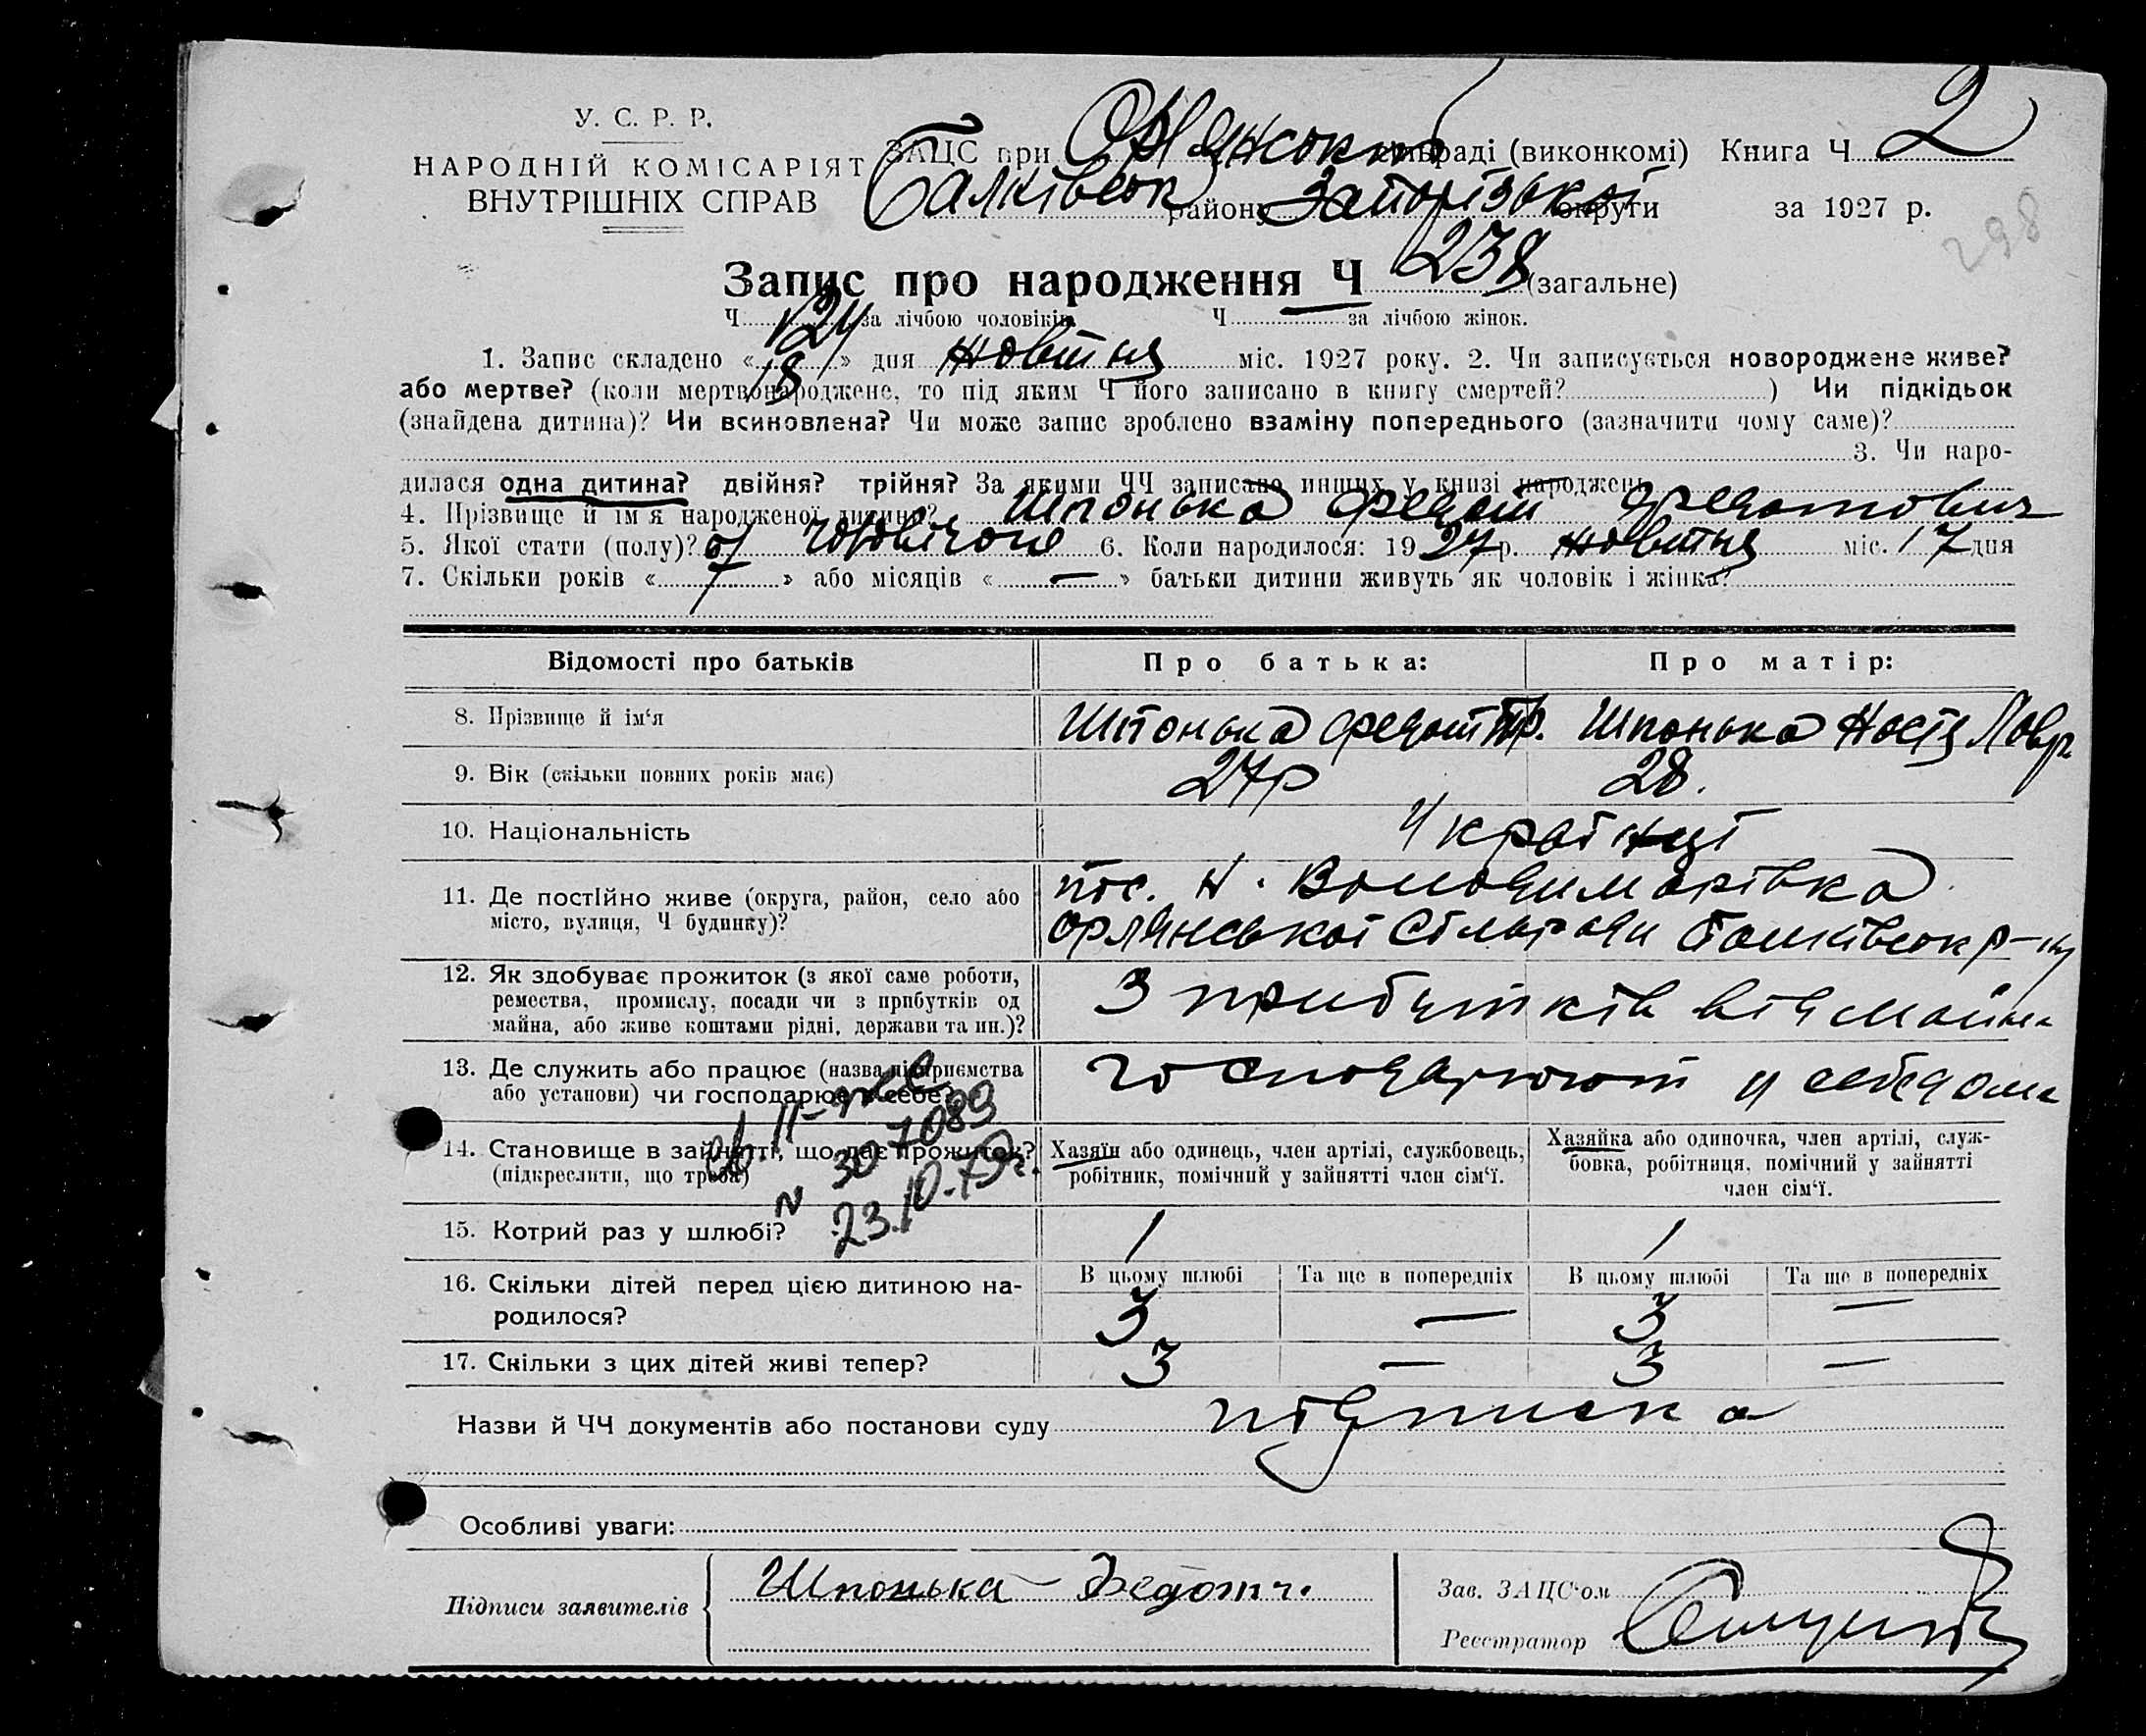 У. С. Р. Р.
НАРОДНІЙ КОМІСАРІЯТ
ВНУТРІШНІХ СПРАВ
ЗАЦС при Орлянськ сільраді (виконкомі) Книга Ч 2
Балківськ району Запорізької округи за 1927 р.
298
Запис про народження Ч 238 (загальне)
Ч 124 за лічбою чоловіків Ч — за лічбою жінок.
1. Запис складено « 18 » дня жовтня міс. 1927 року. 2. Чи записується новороджене живе?
або мертве? (коли мертвонароджене, то під яким Ч його записано в книгу смертей? ) Чи підкідьок
(знайдена дитина)? Чи всиновлена? Чи може запис зроблено взаміну попереднього (зазначити чому саме)?
3. Чи наро-
дилася одна дитина? двійня? трійня? За якими ЧЧ записано инших у книзі народжень
4. Прізвище й ім'я народженої дитини? Шпонька Федот Федотович
5. Якої стати (полу)? чоловічого 6. Коли народилося: 1927 р. жовтня міс. 17 дня
7. Скільки років « 7 » або місяців « — » батьки дитини живуть як чоловік і жінка?
Відомості про батьків Про батька: Про матір:
8. Прізвище й ім'я Шпонька Федот Тр. Шпонька Настя Лавр
9. Вік (скільки повних років має) 27р 28.
10. Національність Українці
11. Де постійно живе (округа, район, село або місто, вулиця, Ч будинку)? пос. Н. Володимирівка
Орлянської Сільради Балківськ р-ну
12. Як здобуває прожиток (з якої саме роботи,
ремества, промислу, посади чи з прибутків од
майна, або живе коштами рідні, держави та ин.)? З прибутків від майна
13. Де служить або працює (назва підприємства
або установи) чи господарює в себе? господарюют у себе дома
св. II-
N 307089
23.10.79г.
14. Становище в зайнятті, що дає прожиток?
(підкреслити, що треба)
Хазяїн або одинець, член артілі, службовець,
робітник, помічний у зайнятті член сім'ї.
Хазяйка або одиночка, член артілі, служ-
бовка, робітниця, помічний у зайнятті
член сім'ї.
15. Котрий раз у шлюбі? 1 1
16. Скільки дітей перед цією дитиною на-
родилося?
В цьому шлюбі Та ще в попередніх В цьому шлюбі Та ще в попередніх
3 — 3 —
17. Скільки з цих дітей живі тепер? 3 — 3 —
Назви й ЧЧ документів або постанови суду підписка
Особливі уваги:
Підписи заявителів Шпонька Федот
Зав. ЗАЦС'ом
Реєстратор